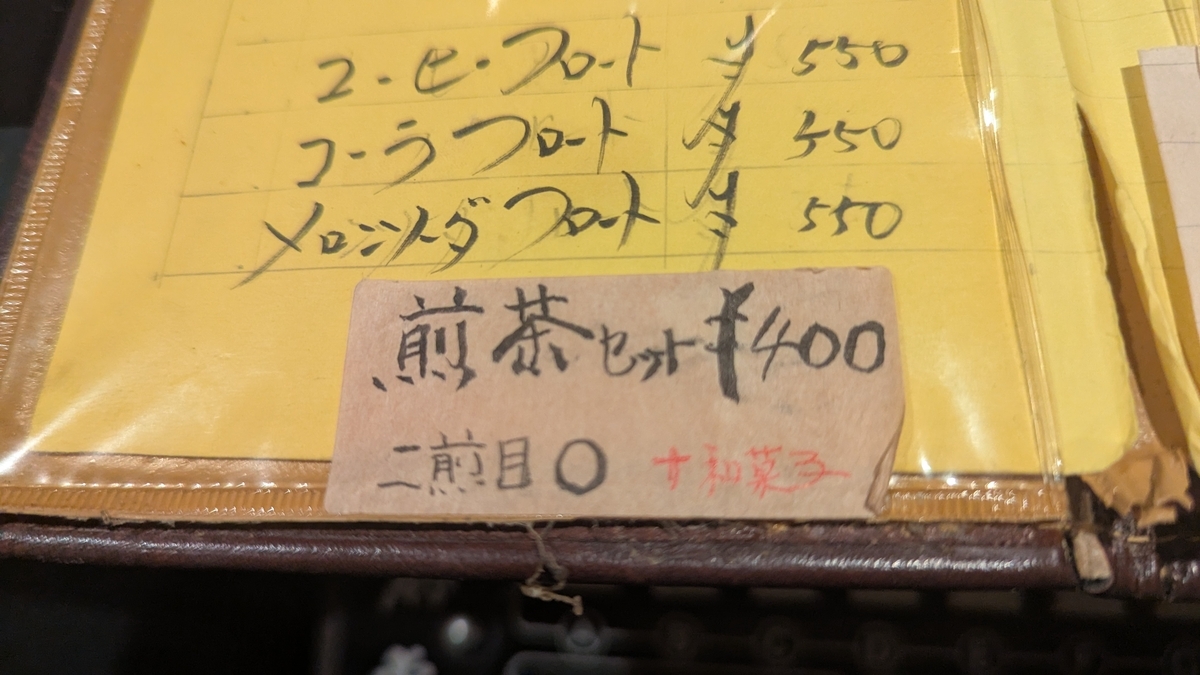 コーヒーフロート ¥ 550
コーラフロート ¥ 550
メロンソーダフロート ¥ 550
煎茶セット ¥400
二煎目〇 +和菓子